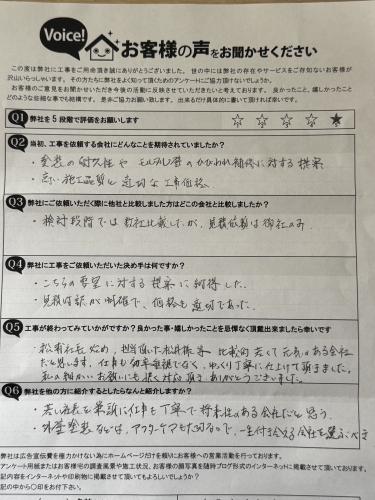 Voice! お客様の声をお聞かせください
この度は弊社に工事をご用命頂き誠にありがとうございました。世の中には弊社の存在やサービスをご存知ないお客様が
沢山いらっしゃいます。その方たちに弊社をよく知って頂くためのアンケートにご協力頂けないでしょうか。
お客様のご意見をお聞かせいただき今後の活動に反映させていただきたいと考えております。良かったこと、嬉しかったこと
どのような些細な事でも結構です。是非ご協力お願い致します。出来るだけ具体的に書いて頂ければ幸いです。
Q1 弊社を5段階で評価をお願いします ☆ ☆ ☆ ☆ ★
1 2 3 4 5
Q2 当初、工事を依頼する会社にどんなことを期待されていましたか?
・塗装の耐久性やモルタル壁のひびわれ補修に対する提案
・高い施工品質と適切な工事価格
Q3 弊社にご依頼いただく際に他社と比較しました方はどこの会社と比較しましたか?
・検討段階では数社比較したが、見積依頼は御社のみ
Q4 弊社に工事をご依頼いただいた決め手は何ですか?
・こちらの要望に対する提案に納得した。
・見積内訳が明確で、価格も適切であった。
Q5 工事が終わってみていかがですか?良かった事・嬉しかったことを忌憚なく頂戴出来ましたら幸いです
・松有社長始め、担当頂いた松井様等 比較的若くて元気のある会社
だと思います。仕事も効率重視でなく、ゆっくり丁寧に仕上げて頂きました。
私の細かいお願いにも快く対応頂き ありがとうございました。
Q6 弊社を他の方に紹介するとしたらなんと紹介しますか?
・若い社長を筆頭に仕事も丁寧で将来性のある会社だと思う。
・外壁塗装などは、アフターケアも大切なので、一生付き合える会社を選ぶべき
弊社は広告宣伝費を極力かけない為にホームページだけを頼りお客様への営業活動を行っております。
アンケート用紙またはお客様宅の調査風景や施工状況、お客様の顔写真を随時ブログ形式のインターネットに掲載させて頂いております。
記内容をインターネットや印刷物に掲載させて頂いてもよろしいでしょうか?
記の中から〇印をお付け下さい。